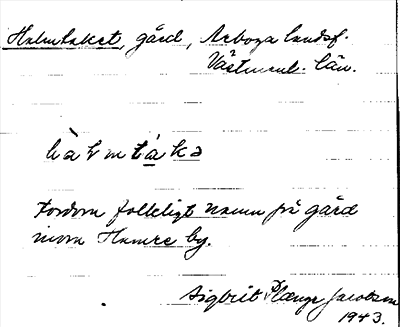 Halmtaket, gård, Arboga landsf.
Västmanl. län.
hàlmtáka
Fordom folkligt namn på gård
inom Hamre by.
Sigbrit Plænge Jacobson
1943.